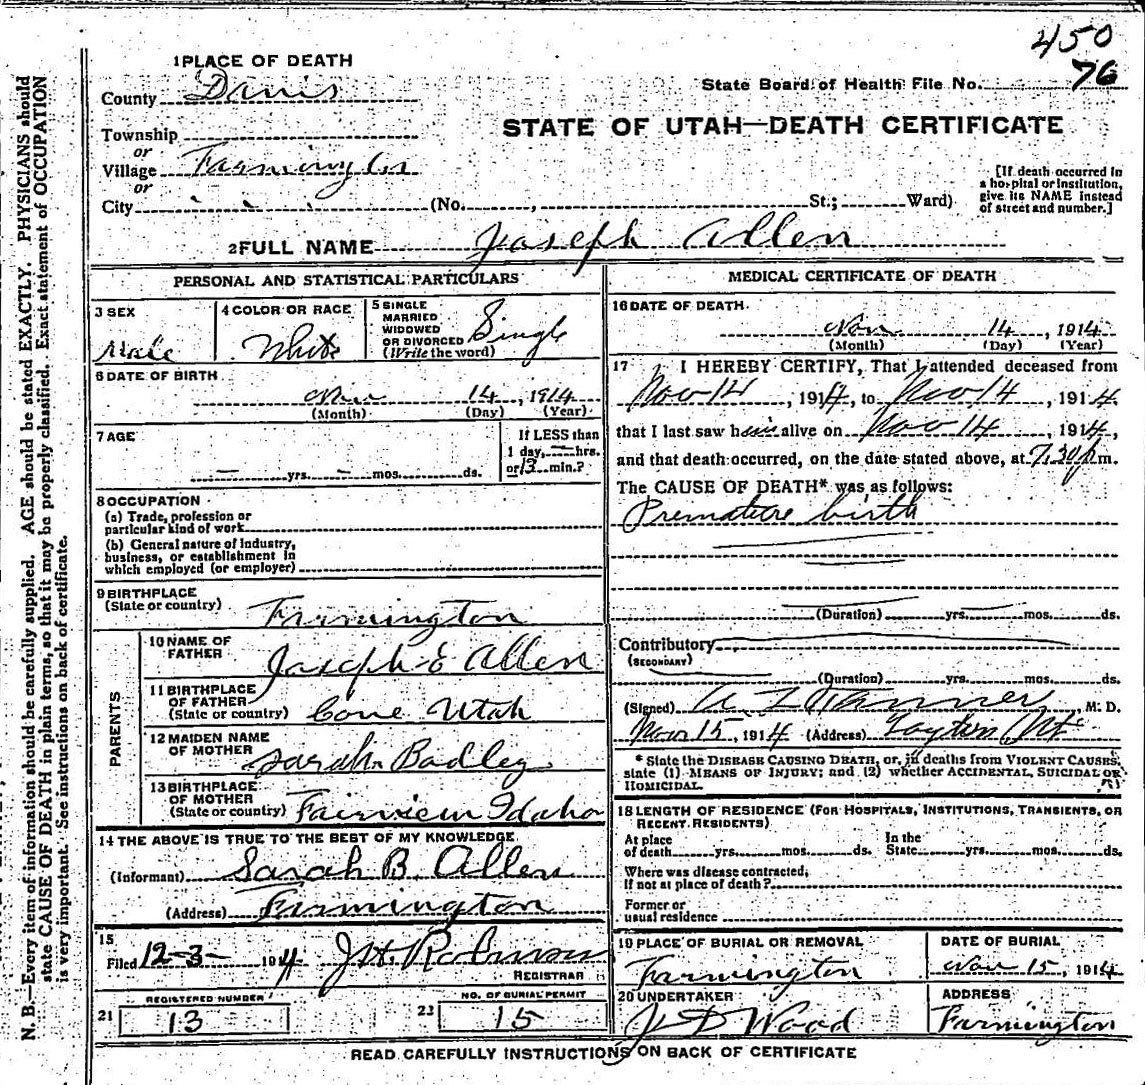 450
76
1 PLACE OF DEATH
State Board of Health File No.
County Davis
STATE OF UTAH—DEATH CERTIFICATE
Township
or
Village Farmington
or
City (No. , St.; Ward)
[If death occurred in
a hospital or institution,
give its NAME instead
of street and number.]
2 FULL NAME Joseph Allen
PERSONAL AND STATISTICAL PARTICULARS
3 SEX
Male
4 COLOR OR RACE
White
5 SINGLE
MARRIED
WIDOWED
OR DIVORCED
(Write the word)
Single
6 DATE OF BIRTH
Nov 14, 1914
(Month) (Day) (Year)
7 AGE
— yrs. — mos. ds.
If LESS than
1 day, — hrs.
or 13 min.?
8 OCCUPATION
(a) Trade, profession or
particular kind of work
(b) General nature of industry,
business, or establishment in
which employed (or employer)
9 BIRTHPLACE
(State or country) Farmington
PARENTS
10 NAME OF
FATHER Joseph E Allen
11 BIRTHPLACE
OF FATHER
(State or country) Cove Utah
12 MAIDEN NAME
OF MOTHER Sarah Bodley
13 BIRTHPLACE
OF MOTHER
(State or country) Fairview Idaho
14 THE ABOVE IS TRUE TO THE BEST OF MY KNOWLEDGE
(Informant) Sarah B. Allen
(Address) Farmington
15
Filed 12-3- 1914 J.H. Robinson
REGISTRAR
REGISTERED NUMBER
21 13
NO. OF BURIAL PERMIT
22 15
MEDICAL CERTIFICATE OF DEATH
16 DATE OF DEATH
Nov 14, 1914
(Month) (Day) (Year)
17 I HEREBY CERTIFY, That I attended deceased from
Nov 14, 1914, to Nov 14, 1914,
that I last saw him alive on Nov 14, 1914,
and that death occurred, on the date stated above, at 7.30 p m.
The CAUSE OF DEATH* was as follows:
Premature birth
(Duration) yrs. mos. ds.
Contributory
(SECONDARY)
(Duration) yrs. mos. ds.
(Signed) A Z Tanner, M. D.
Nov 15, 1914 (Address) Layton Ut
* State the DISEASE CAUSING DEATH, or, in deaths from VIOLENT CAUSES,
state (1) MEANS OF INJURY; and (2) whether ACCIDENTAL, SUICIDAL OR
HOMICIDAL.
18 LENGTH OF RESIDENCE (FOR HOSPITALS, INSTITUTIONS, TRANSIENTS, OR
RECENT RESIDENTS)
At place
of death yrs. mos. ds.
In the
State yrs. mos. ds.
Where was disease contracted,
if not at place of death?
Former or
usual residence
19 PLACE OF BURIAL OR REMOVAL
Farmington
DATE OF BURIAL
Nov 15, 1914
20 UNDERTAKER
J D Wood
ADDRESS
Farmington
READ CAREFULLY INSTRUCTIONS ON BACK OF CERTIFICATE
N. B.—Every item of information should be carefully supplied. AGE should be stated EXACTLY. PHYSICIANS should
state CAUSE OF DEATH in plain terms, so that it may be properly classified. Exact statement of OCCUPATION
is very important. See instructions on back of certificate.